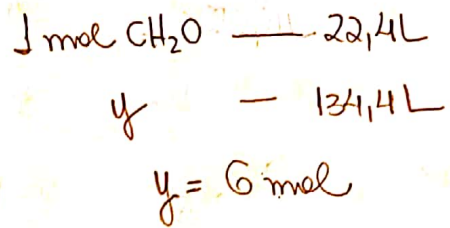 1 mol CH₂O — 22,4L
y — 134,4L
y = 6 mol